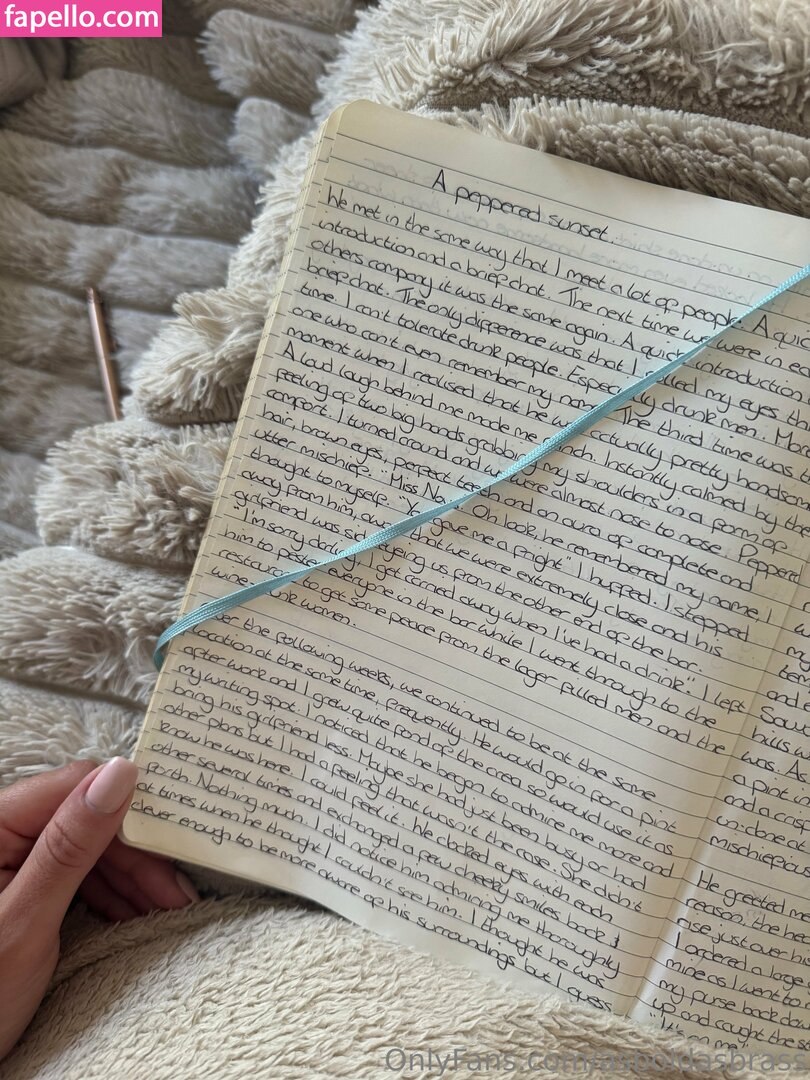 fapello.com
A peppered sunset.
We met in the same way that I meet a lot of people. A quic
introduction and a brief chat. The next time we were in eac
others company it was the same again. A quick introduction
brief chat. The only difference was that I rolled my eyes th
time. I can't tolerate drunk people. Especially drunk men. More
one who can't even remember my name. The third time was
moment when I realised that he was actually pretty handsom
A loud laugh behind me made me flinch. Instantly calmed by the
feeling of two big hands grabbing my shoulders in a form of
comfort. I turned around and we were almost nose to nose. Peppered
hair, brown eyes, perfect teeth and an aura of complete and
utter mischief. "Miss Oh look, he remembered my name, I
thought to myself. "You gave me a fright." I huffed. I stepped
away from him, that we were extremely close and his
girlfriend was eyeing us from the other end of the bar.
"I'm sorry darling, I get carried away when I've had a drink." I left
him to pester everyone in the bar while I went through to the
restaurant to get some peace from the lager filled men and the
wine drunk women.
the following weeks, we continued to be at the same
location at the same time, frequently. He would go in for a pint
after work and I grew quite fond of the area so would use it as
my writing spot. I noticed that he began to admire me more and
bring his girlfriend less. Maybe she had just been busy or had
other plans but I had a feeling that wasn't the case. She didn't
know he was here. I could feel it. We clocked eyes with each
other several times and exchanged a few cheeky smiles back &
forth. Nothing much. I did notice him admiring me thoroughly
at times when he thought I couldn't see him. I thought he was
clever enough to be more aware of his surroundings but I guess
hills w
was. As
a pint w
and a cris
mischief
He greeted me
reason, the he
rise just over his
I ordered a large
mine as I went to
my purse back do
up and caught the s
"It's on me"
OnlyFans.com/asboldasbrass